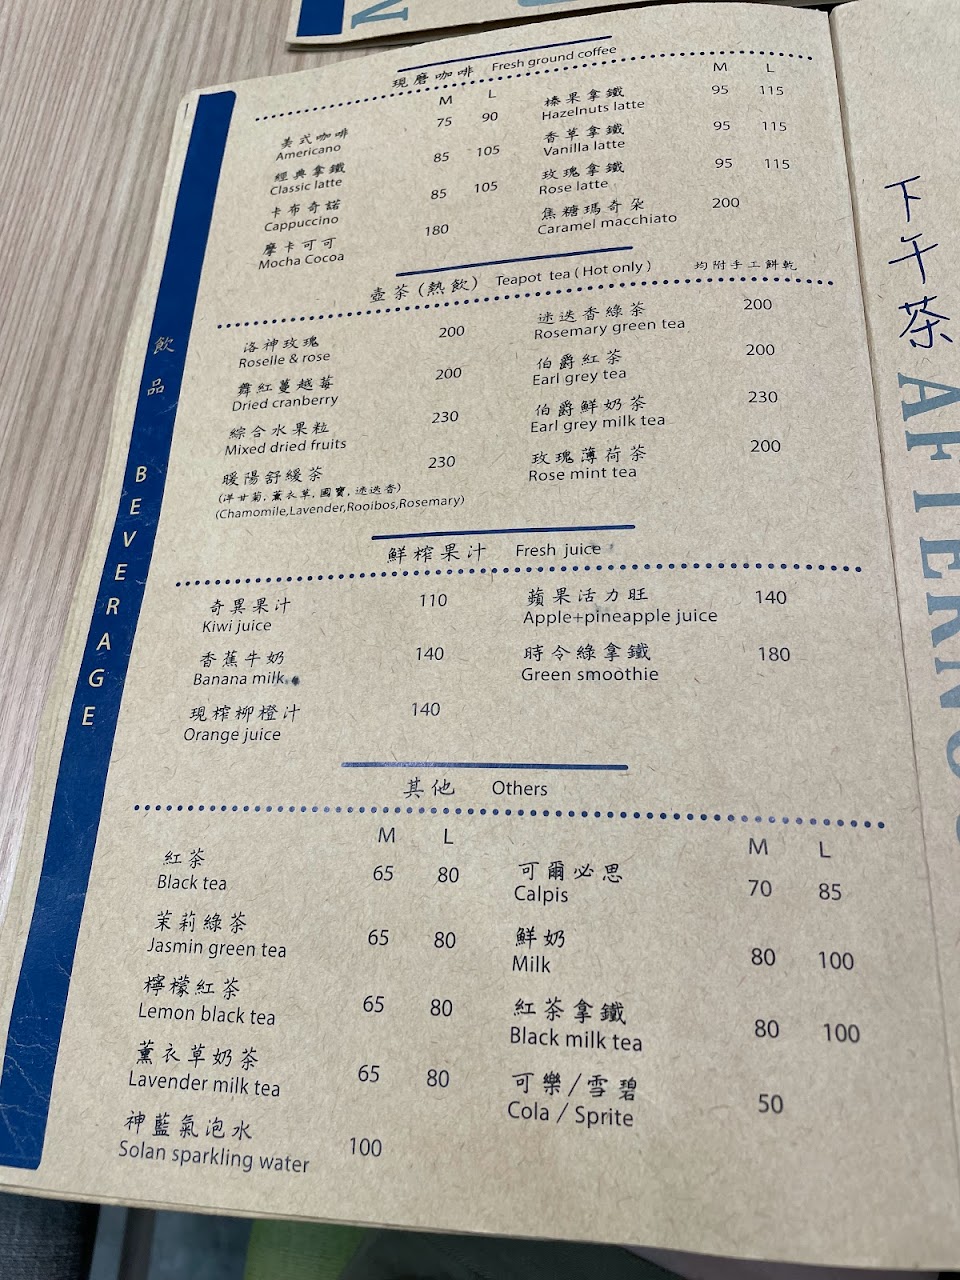 N
飲品 BEVERAGE
現磨咖啡 Fresh ground coffee
M L
美式咖啡 75 90
Americano
經典拿鐵 85 105
Classic latte
卡布奇諾 85 105
Cappuccino
摩卡可可 180
Mocha Cocoa
M L
榛果拿鐵 95 115
Hazelnuts latte
香草拿鐵 95 115
Vanilla latte
玫瑰拿鐵 95 115
Rose latte
焦糖瑪奇朵 200
Caramel macchiato
壺茶(熱飲) Teapot tea ( Hot only ) 均附手工餅乾
洛神玫瑰 200
Roselle & rose
舞紅蔓越莓 200
Dried cranberry
綜合水果粒 230
Mixed dried fruits
暖陽舒緩茶 230
(洋甘菊, 薰衣草, 國寶, 迷迭香)
(Chamomile,Lavender,Rooibos,Rosemary)
迷迭香綠茶 200
Rosemary green tea
伯爵紅茶 200
Earl grey tea
伯爵鮮奶茶 230
Earl grey milk tea
玫瑰薄荷茶 200
Rose mint tea
鮮榨果汁 Fresh juice
奇異果汁 110
Kiwi juice
香蕉牛奶 140
Banana milk
現榨柳橙汁 140
Orange juice
蘋果活力旺 140
Apple+pineapple juice
時令綠拿鐵 180
Green smoothie
其他 Others
M L
紅茶 65 80
Black tea
茉莉綠茶 65 80
Jasmin green tea
檸檬紅茶 65 80
Lemon black tea
薰衣草奶茶 65 80
Lavender milk tea
神藍氣泡水 100
Solan sparkling water
M L
可爾必思 70 85
Calpis
鮮奶 80 100
Milk
紅茶拿鐵 80 100
Black milk tea
可樂/雪碧 50
Cola / Sprite
下午茶